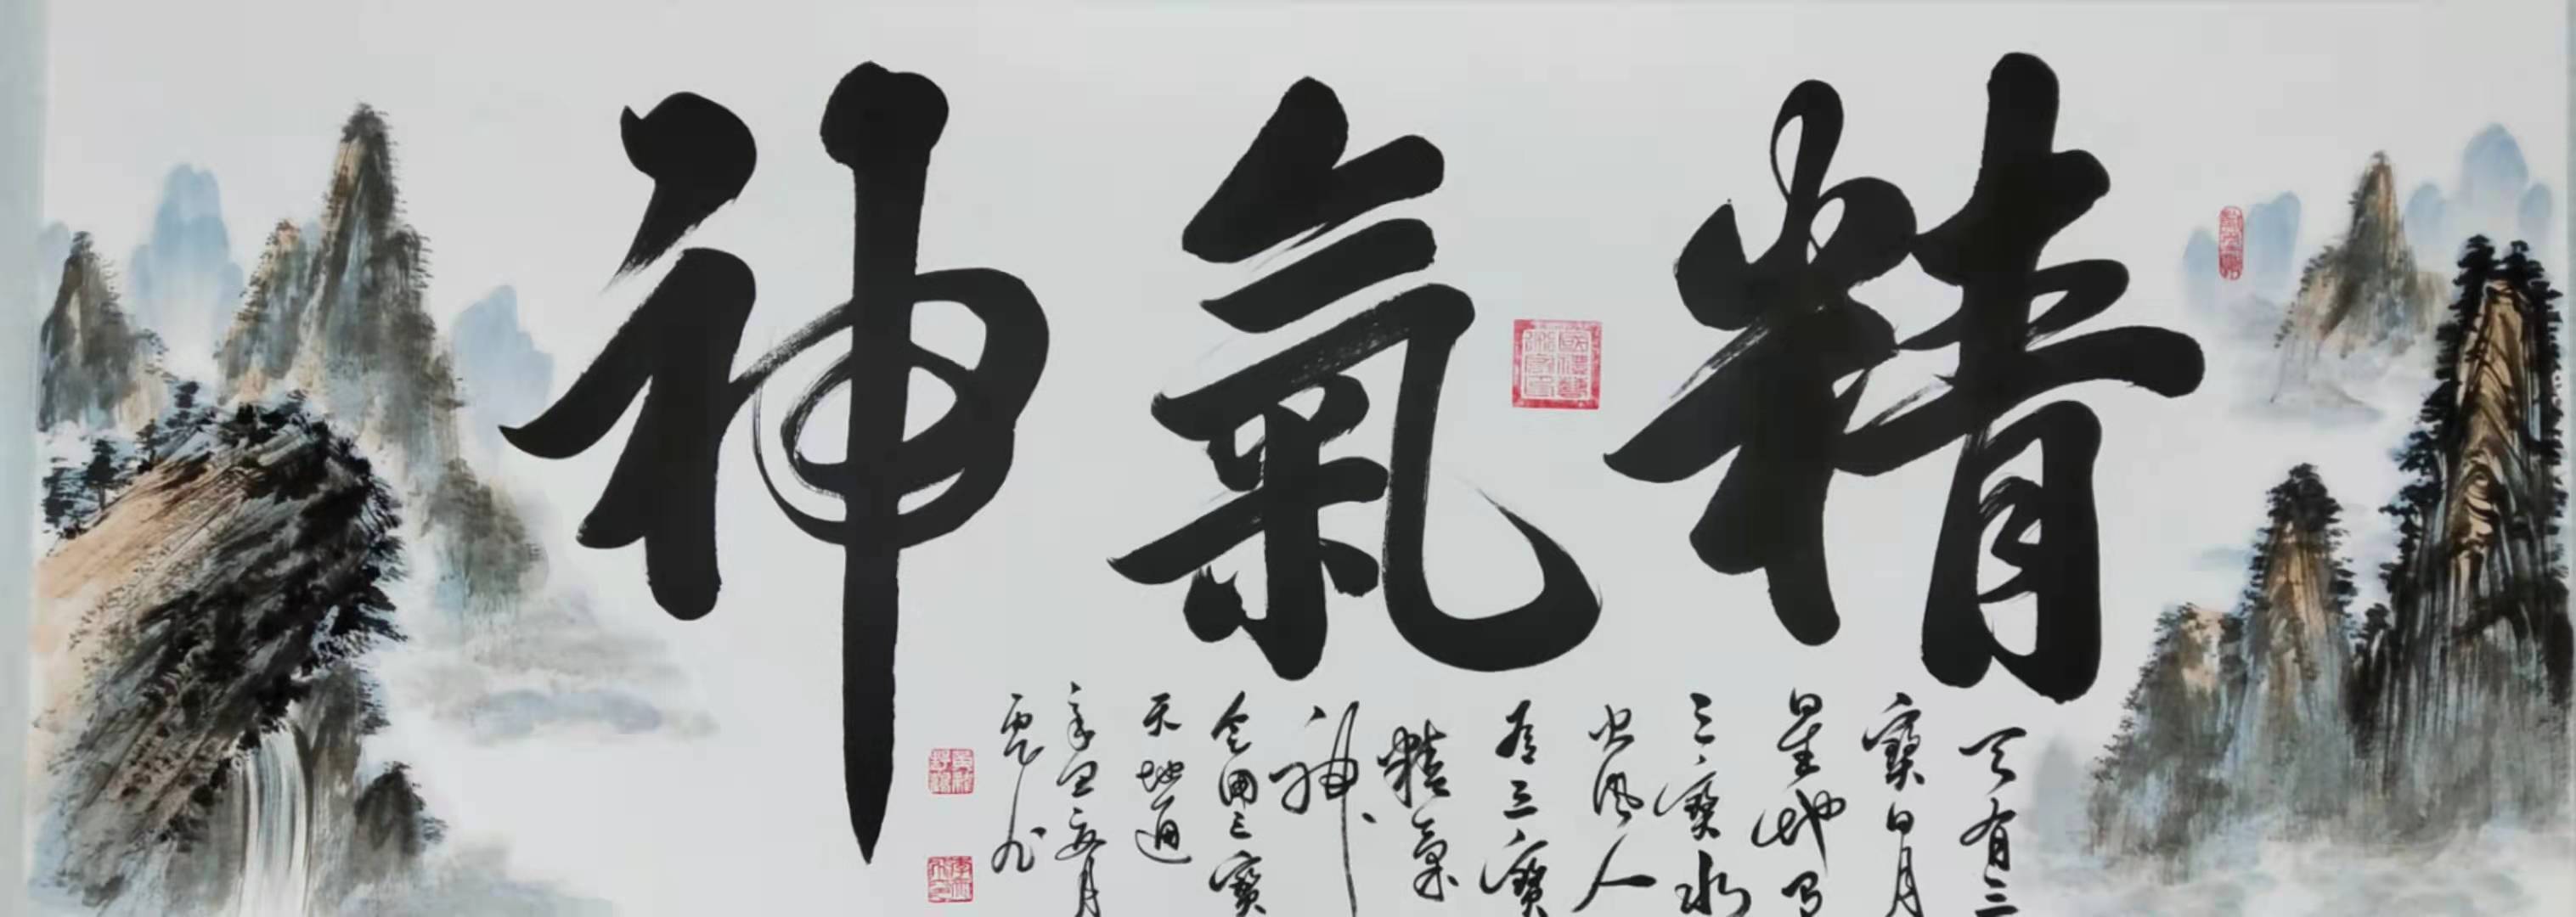 精氣神
天有三
寶日月
星地有
三寶水
火風人
有三寶
精氣
神
三寶
天地通
辛丑月